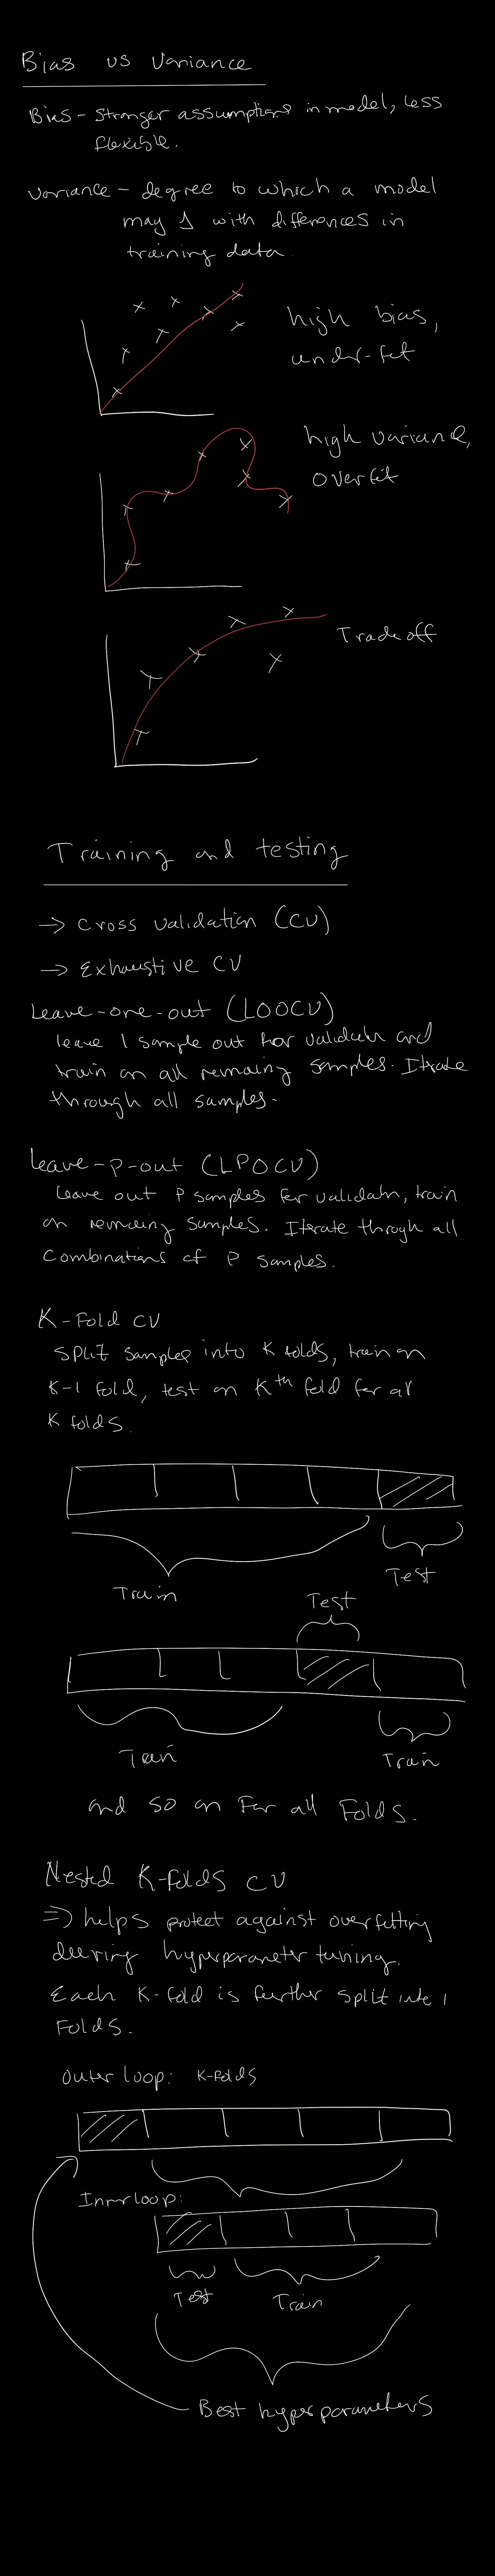 Bias vs Variance
Bias - Stronger assumptions in model, less
flexible.
Variance - degree to which a model
may Δ with differences in
training data.
high bias,
under-fit
high variance,
overfit
Trade off
Training and testing
→ Cross validation (CV)
→ Exhaustive CV
Leave-one-out (LOOCV)
leave 1 sample out for validatn and
train on all remaining samples. Iterate
through all samples.
Leave-p-out (LPOCV)
Leave out P samples for validatn, train
on remaining samples. Iterate through all
Combinations of P samples.
K-Fold CV
Split samples into K folds, train on
K-1 fold, test on Kth fold for all
K folds.
Train
Test
Test
Train
Train
and so on For all Folds.
Nested K-folds CV
⇒ helps protect against overfitting
during hyperparameter tuning.
Each K-fold is further split into l
Folds.
Outer loop: K-folds
Inner loop:
Test
Train
Best hyperparameters